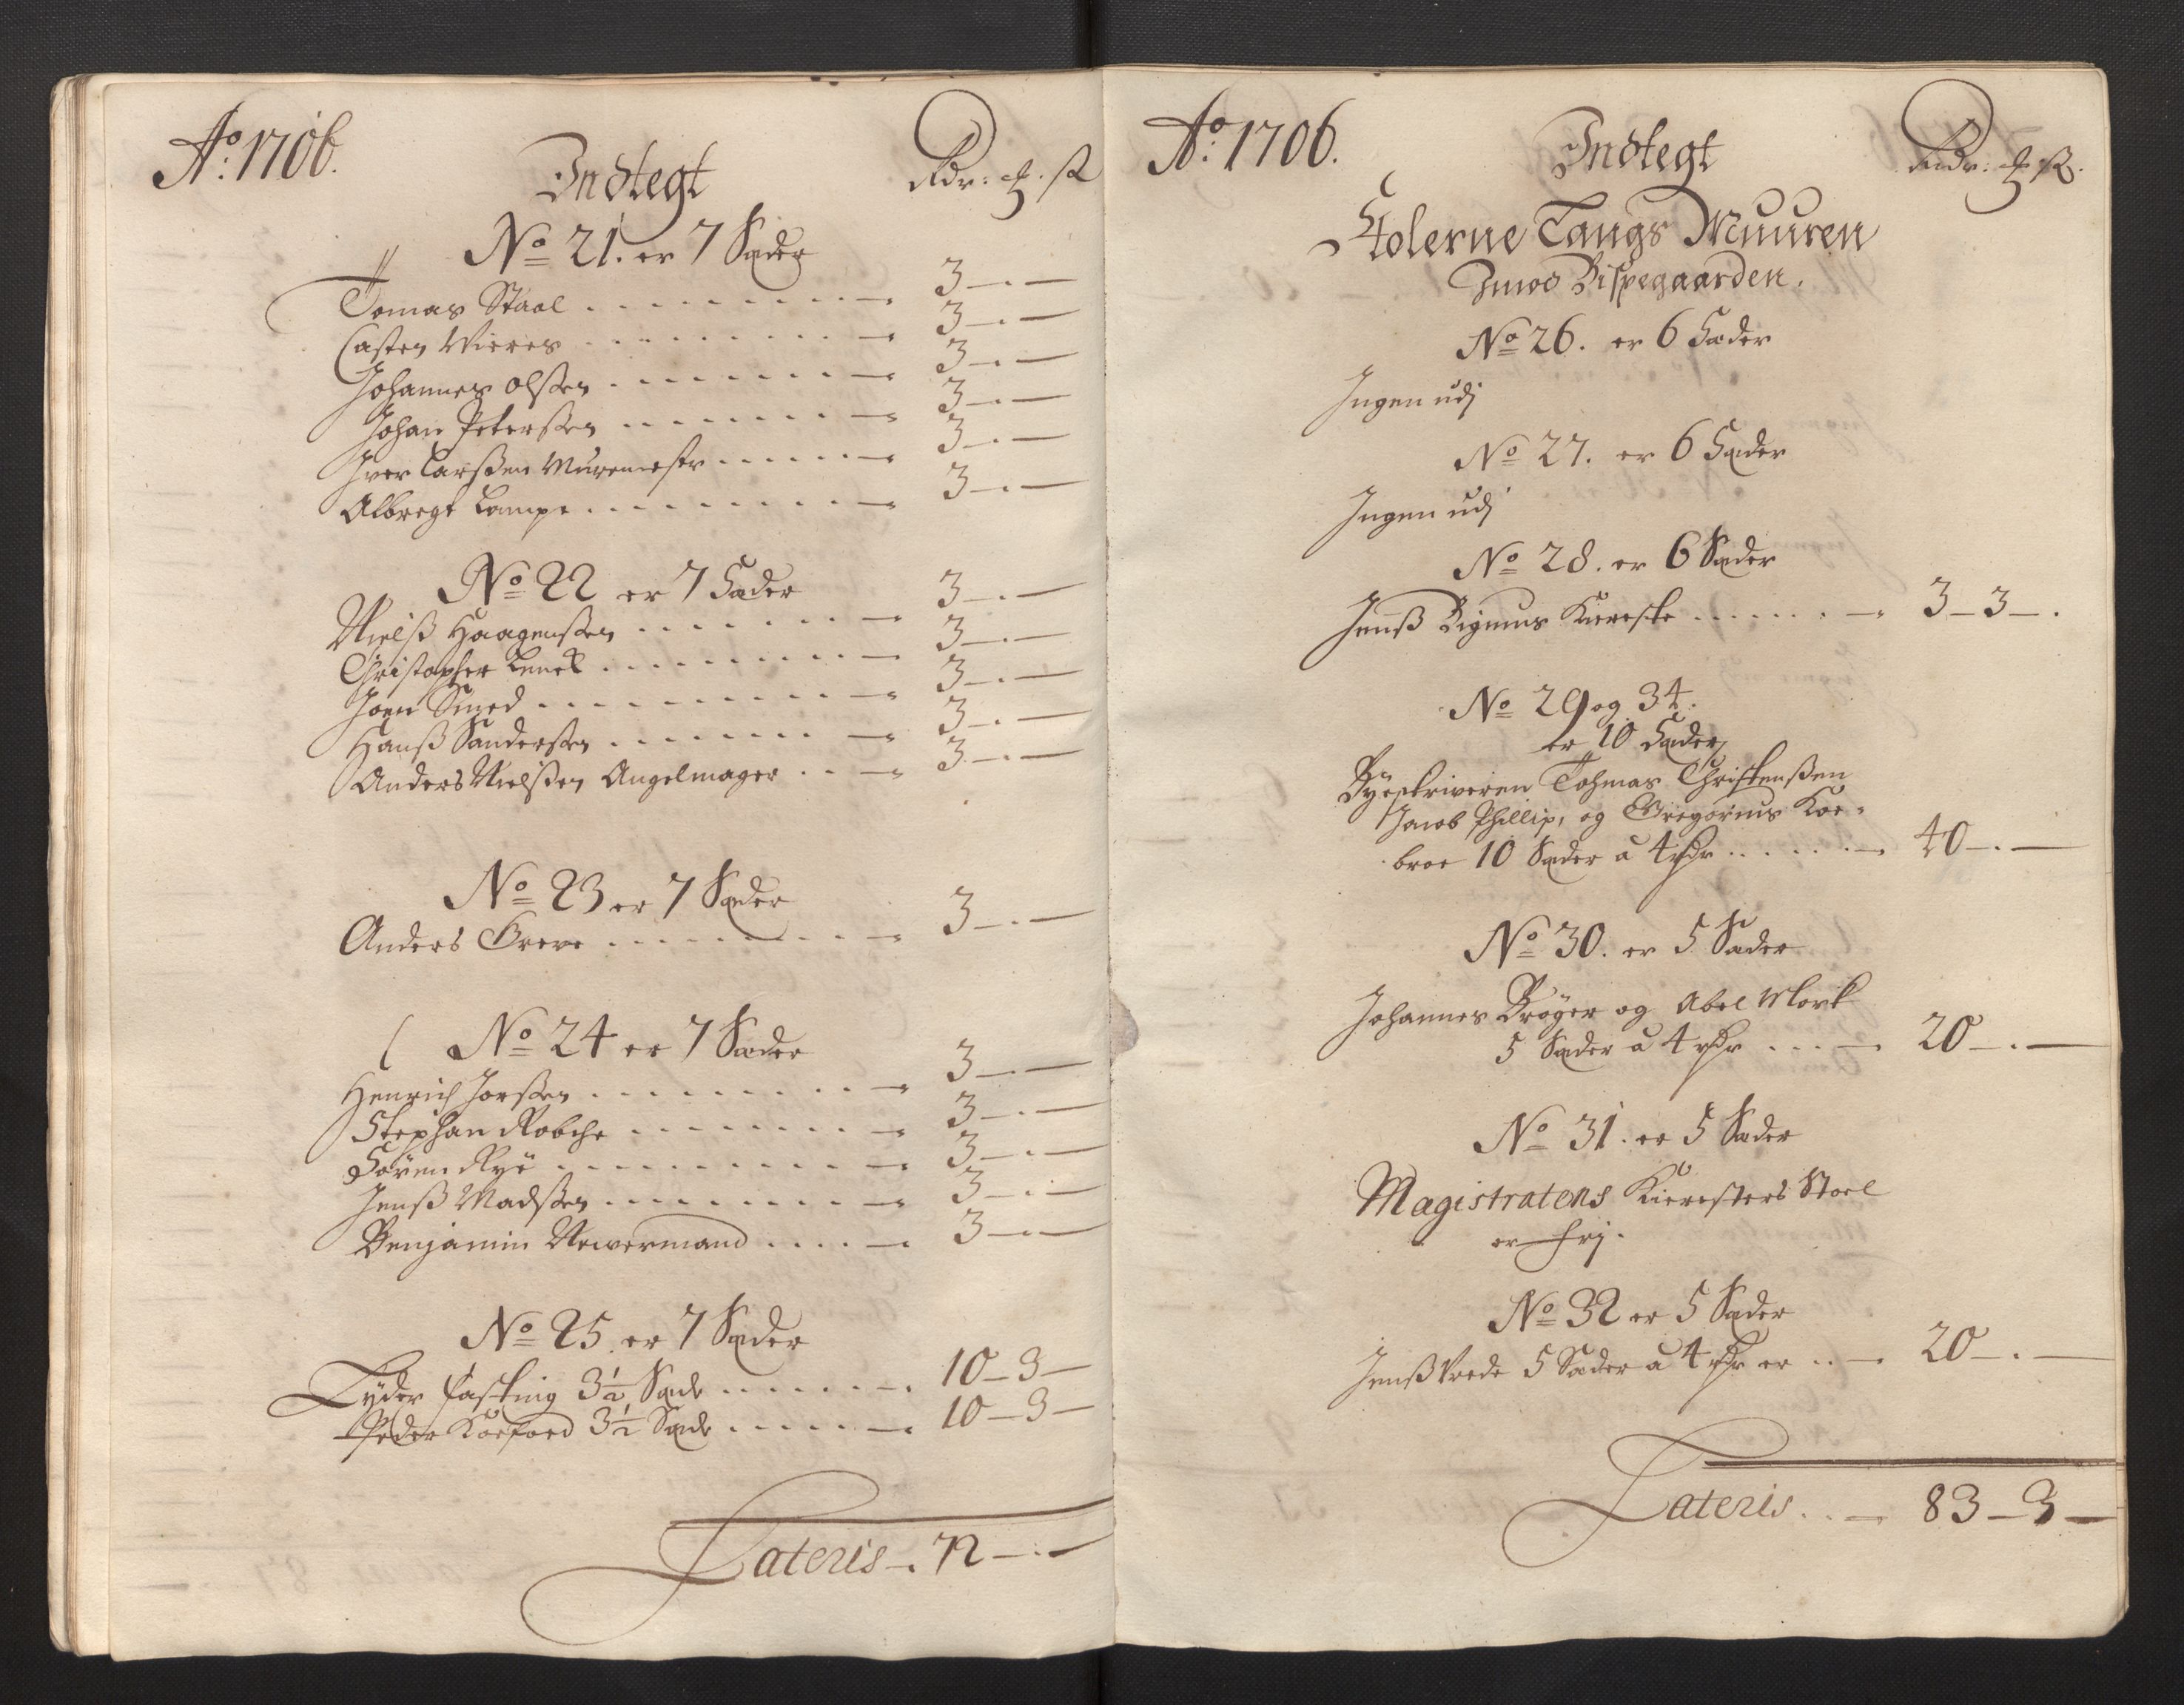 Ao: 1706.
Indtegt
Rdr: ₰. ß
No 21. er 7 Sæder
Tomas Staal . . . . . . . . . — 3—.—
Casten Wieres . . . . . . . . — 3—.—
Johannes Olssen . . . . . . . — 3—.—
Johan Peterssen . . . . . . . — 3—.—
Iver Larssen Muremestr . . . . . — 3—.—
Albregt Lampe . . . . . . . . — 3—.—
No 22 er 7 Sæder
Nielß Haagenssen . . . . . . . — 3—.—
Christopher . . . . . . . . — 3—.—
Joen Smed . . . . . . . . . — 3—.—
Hanß Sanderssen . . . . . . . — 3—.—
Anders Nielssen Angelmager . . — 3—.—
No 23 er 7 Sæder
Anders Greve . . . . . . . . — 3—.—
No 24 er 7 Sæder
Henrich Jorssen . . . . . . . . — 3—.—
Stephan . . . . . . . . — 3—.—
Søren Rye . . . . . . . . . — 3—.—
Jenß Madssen . . . . . . . . — 3—.—
Benjamin Newermand . . . . — 3—.—
No 25. er 7 Sæder
Tyder Fasting 3½ Sæde . . . . . . . 10—3—
Peder Koefoed 3½ Sæde . . . . . — 10—3—
Lateris —. 72—.—
Ao: 1706.
Indtegt
Rdr: ₰ ß.
Stolerne Langs Muuren
Imod Bispegaarden.
No 26. er 6 Sæder
Ingen udj
No 27. er 6 Sæder
Ingen udj
No 28. er 6 Sæder
Jenß Kiereske . . . . . . — 3—3—.
No 29 og 34.
er 10 Sæder
Byeskriveren Tohmas Christenssen
Jacob Phillip, og Gregorius Koe-
broe 10 Sæder a 4 rdr . . . . . — 40—.—
No 30. er 5 Sæder
Johannes Brøger og Abel Mork
5 Sæder a 4 rdr . . . — 20—.—
No 31. er 5 Sæder
Magistratens Kieresters Stoel
er frj.
No 32 er 5 Sæder
Jenß Vrede 5 Sæder a 4 rdr er . . — 20—.—
Lateris . . — 83—3—